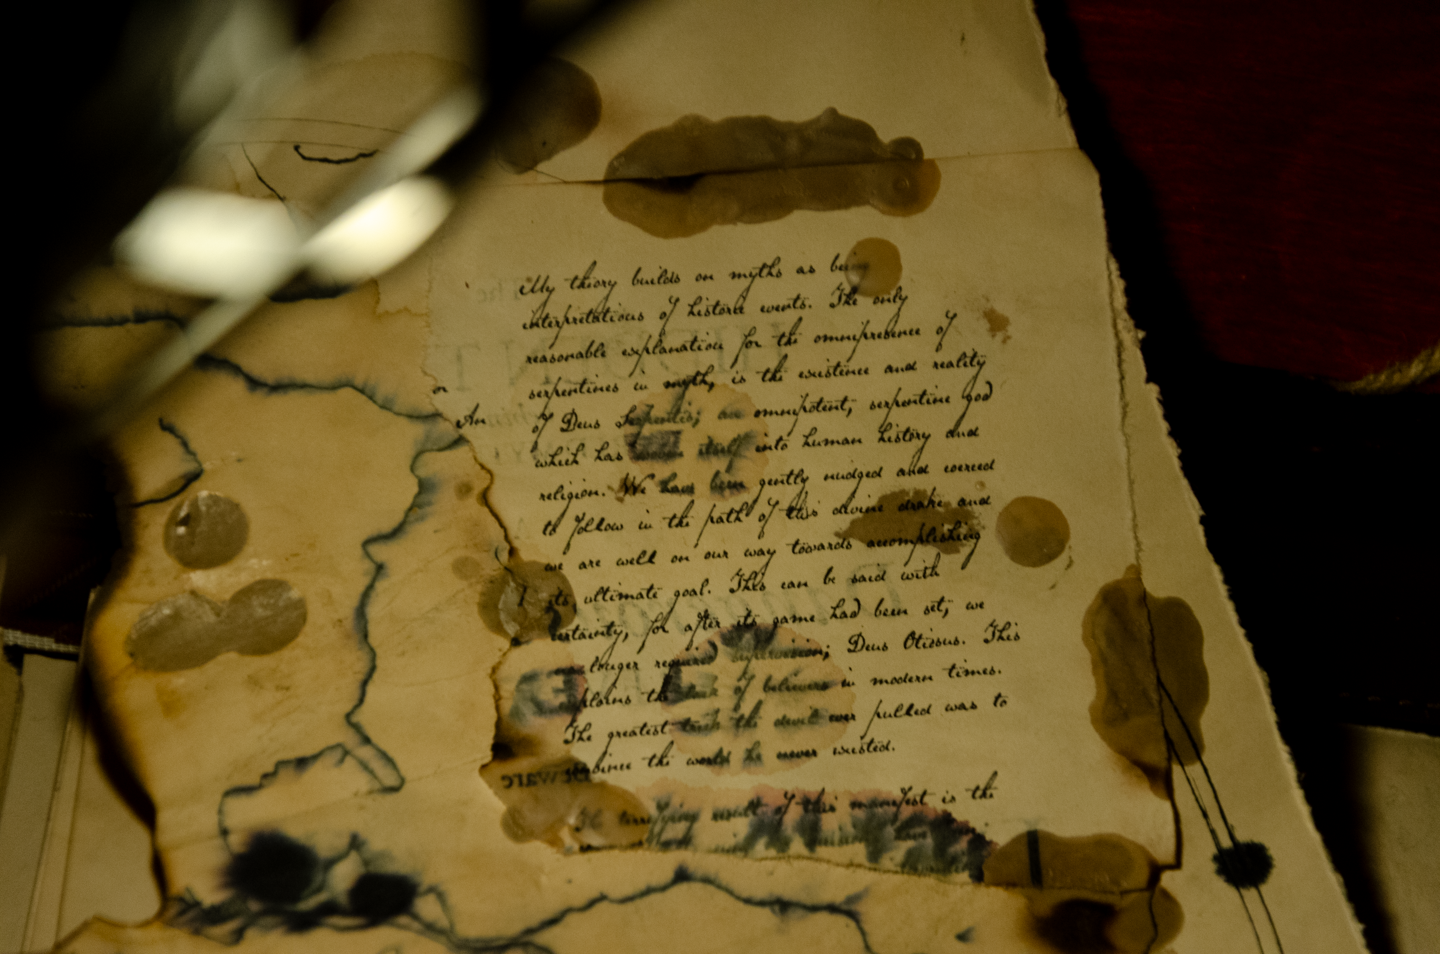 My theory builds on myths as being
interpretations of historic events. The only
reasonable explanation for the omnipresence of
serpentines in myth, is the existence and reality
or
An
of Deus Serpentis; an omnipotent, serpentine god
which has woven itself into human history and
religion. We have been gently nudged and coerced
to follow in the path of this divine drake and
we are well on our way towards accomplishing
its ultimate goal. This can be said with
certainty, for after its game had been set, we
longer required supervision; Deus Otiosus. This
explains the lack of believers in modern times.
The greatest trick the devil ever pulled was to
convince the world he never existed.
Beware
The terrifying result of this manifest is the